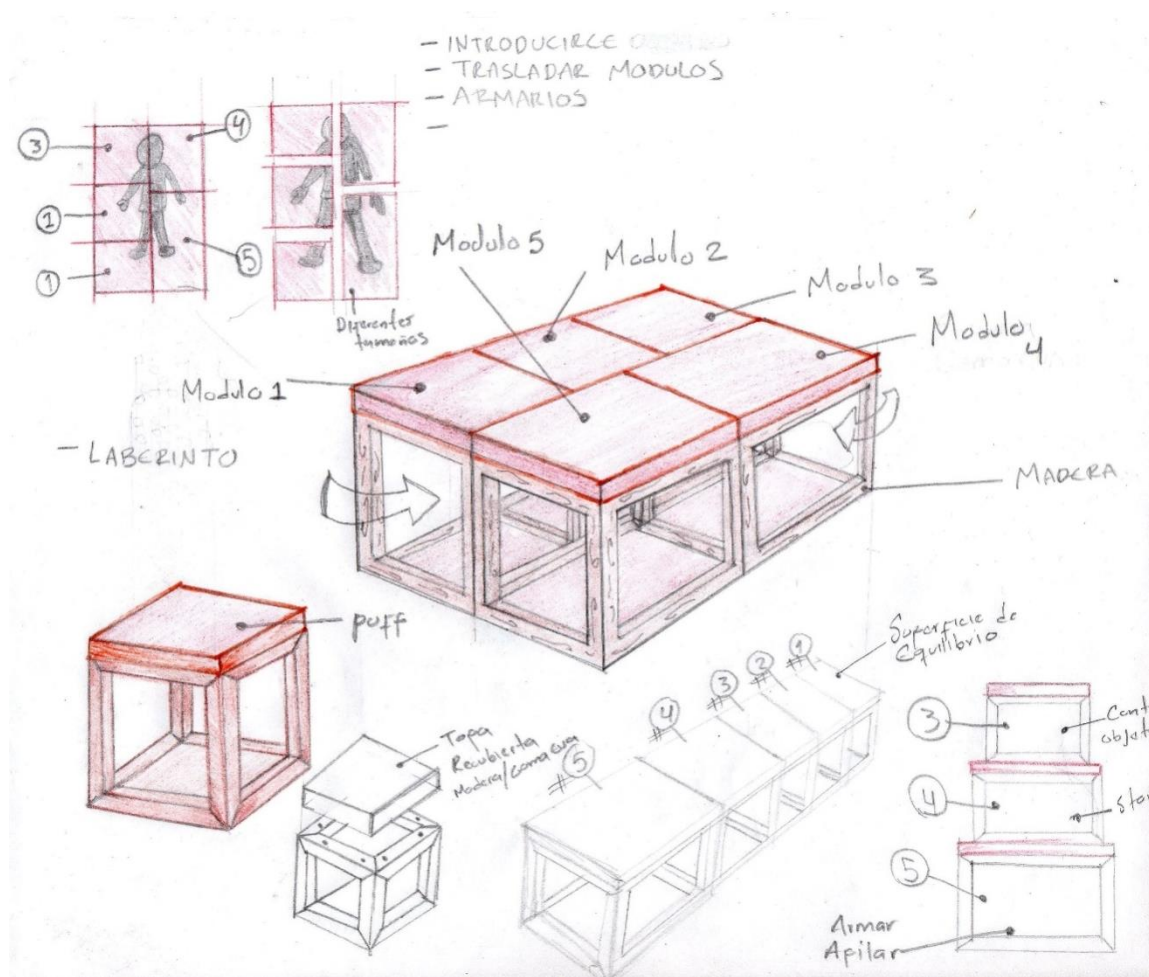 - INTRODUCIRCE
- TRASLADAR MODULOS
- ARMARIOS
-
3
4
2
1
5
Diferentes
tamaños
Modulo 5
Modulo 2
Modulo 3
Modulo
4
Modulo 1
- LABERINTO
MADERA
puff
Tapa
Recubierta
Madera/
Superficie de
Equilibrio
#1
#2
#3
#4
#5
3
Cont
objet
4
Star
5
Armar
Apilar